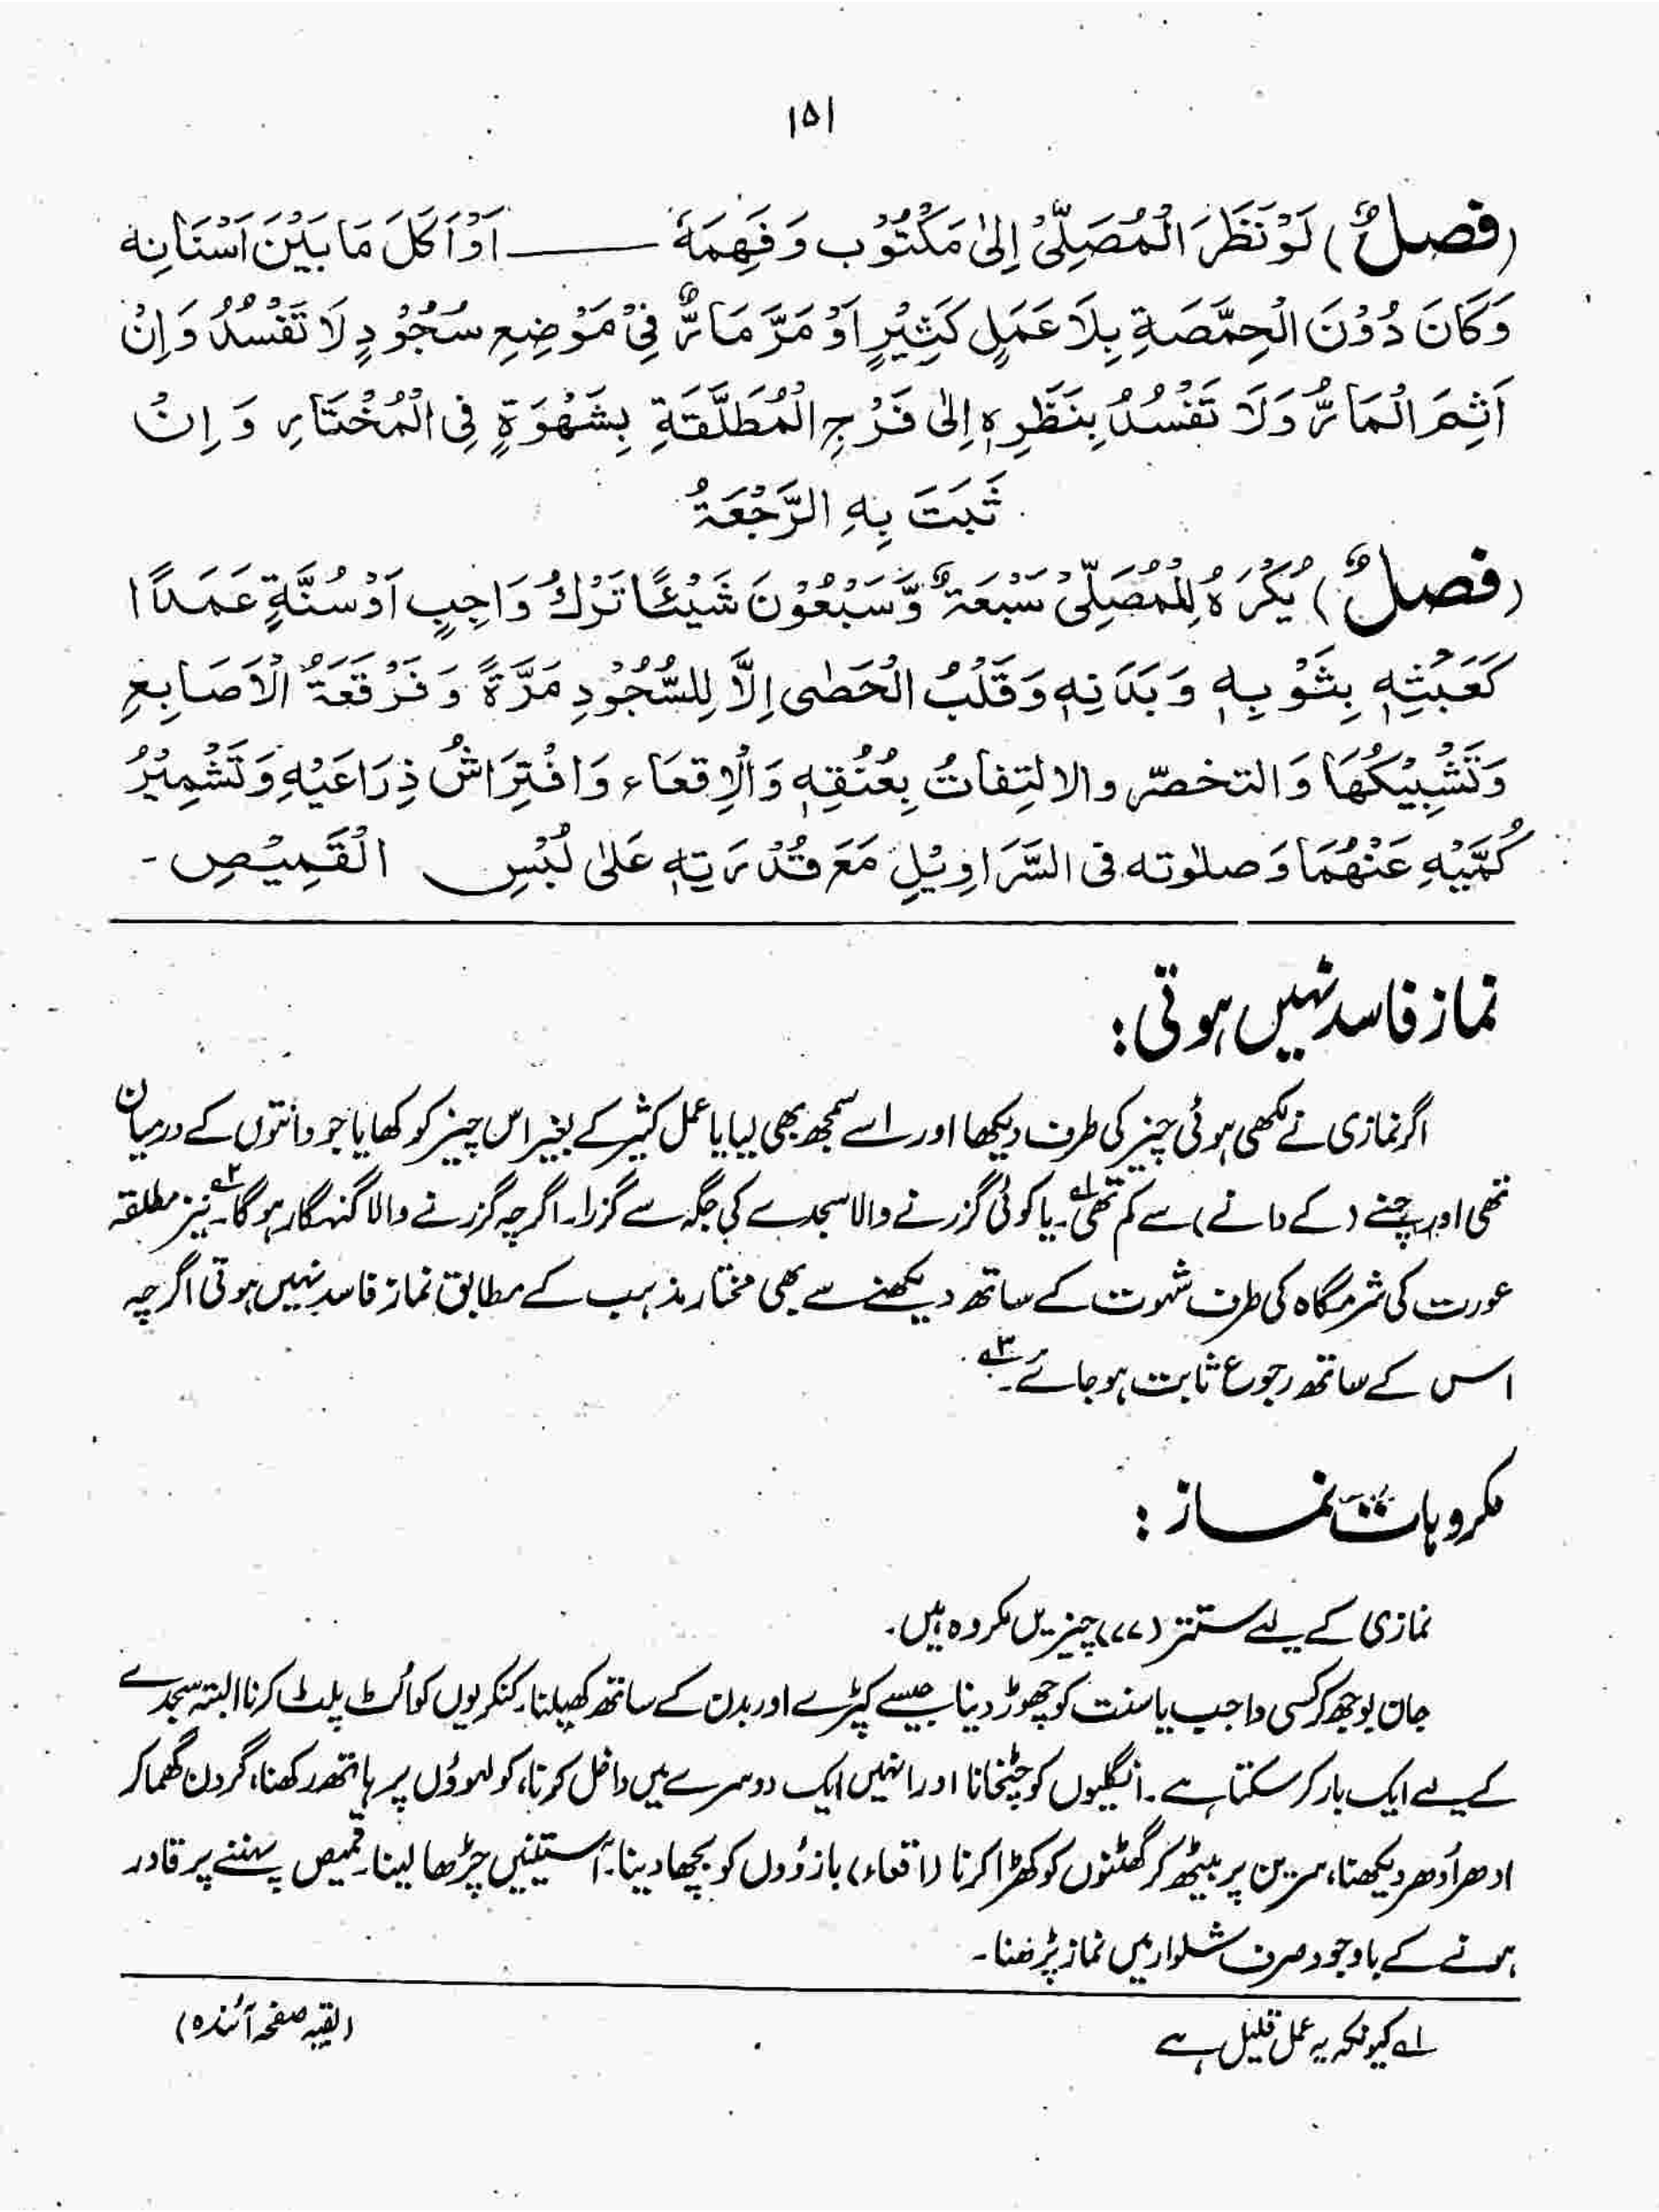 ۱۵۱
(فصلٌ) لَوْ نَظَرَ الْمُصَلِّیْ اِلیٰ مَکْتُوْبٍ وَفَهِمَهٗ ــــــ اَوْ اَکَلَ مَا بَیْنَ اَسْنَانِهٖ
وَکَانَ دُوْنَ الْحِمَّصَةِ بِلَا عَمَلٍ کَثِیْرٍ اَوْ مَرَّ مَارٌّ فِیْ مَوْضِعِ سُجُوْدٍ لَا تَفْسُدُ وَاِنْ
اَثِمَ الْمَارُّ وَلَا تَفْسُدُ بِنَظَرِهٖ اِلیٰ فَرْجِ الْمُطَلَّقَةِ بِشَهْوَةٍ فِی الْمُخْتَارِ وَ اِنْ
ثَبَتَ بِهِ الرَّجْعَةُ
(فصلٌ) یُکْرَهُ لِلْمُصَلِّیْ سَبْعَةٌ وَّسَبْعُوْنَ شَیْئًا تَرْكُ وَاجِبٍ اَوْ سُنَّةٍ عَمَدًا
کَعَبْثِهٖ بِثَوْبِهٖ وَبَدَنِهٖ وَقَلْبُ الْحَصٰی اِلَّا لِلسُّجُوْدِ مَرَّةً وَفَرْقَعَةُ الْاَصَابِعِ
وَتَشْبِیْکُهَا وَالتخصّر والالتِفاتُ بِعُنُقِهٖ وَالْاِقعَاء وَافْتِرَاشُ ذِرَاعَیْهِ وَتَشْمِیْرُ
کُمَّیْهِ عَنْهُمَا وَصلوٰته فی السَّرَاوِیْلِ مَعَ قُدْرَتِهٖ عَلیٰ لُبْسِ الْقَمِیْصِ ۔
نماز فاسد نہیں ہوتی:
اگر نمازی نے لکھی ہوئی چیز کی طرف دیکھا اور اسے سمجھ بھی لیا یا عمل کثیر کے بغیر اس چیز کو کھایا جو دانتوں کے درمیان
تھی اور چنے (کے دانے) سے کم تھی۔۱ یا کوئی گزرنے والا سجدے کی جگہ سے گزرا۔ اگرچہ گزرنے والا گنہگار ہوگا۔۲ نیز مطلقہ
عورت کی شرمگاہ کی طرف شہوت کے ساتھ دیکھنے سے بھی مختار مذہب کے مطابق نماز فاسد نہیں ہوتی اگرچہ
اس کے ساتھ رجوع ثابت ہوجائے۔۳
مکروہات نماز:
نمازی کے لیے ستتر (۷۷) چیزیں مکروہ ہیں۔
جان بوجھ کر کسی واجب یا سنت کو چھوڑ دینا جیسے کپڑے اور بدن کے ساتھ کھیلنا۔ کنکریوں کو الٹ پلٹ کرنا البتہ سجدے
کے لیے ایک بار کر سکتا ہے۔ انگلیوں کو چٹخانا اور انہیں ایک دوسرے میں داخل کرنا، کولہوؤں پر ہاتھ رکھنا، گردن گھما کر
ادھر اُدھر دیکھنا، سرین پر بیٹھ کر گھٹنوں کو کھڑا کرنا (اقعاء) بازؤوں کو بچھا دینا۔ آستینیں چڑھا لینا۔ قمیص پہننے پر قادر
ہونے کے باوجود صرف شلوار میں نماز پڑھنا۔
۱ کیونکہ یہ عمل قلیل ہے (بقیہ صفحہ آئندہ)